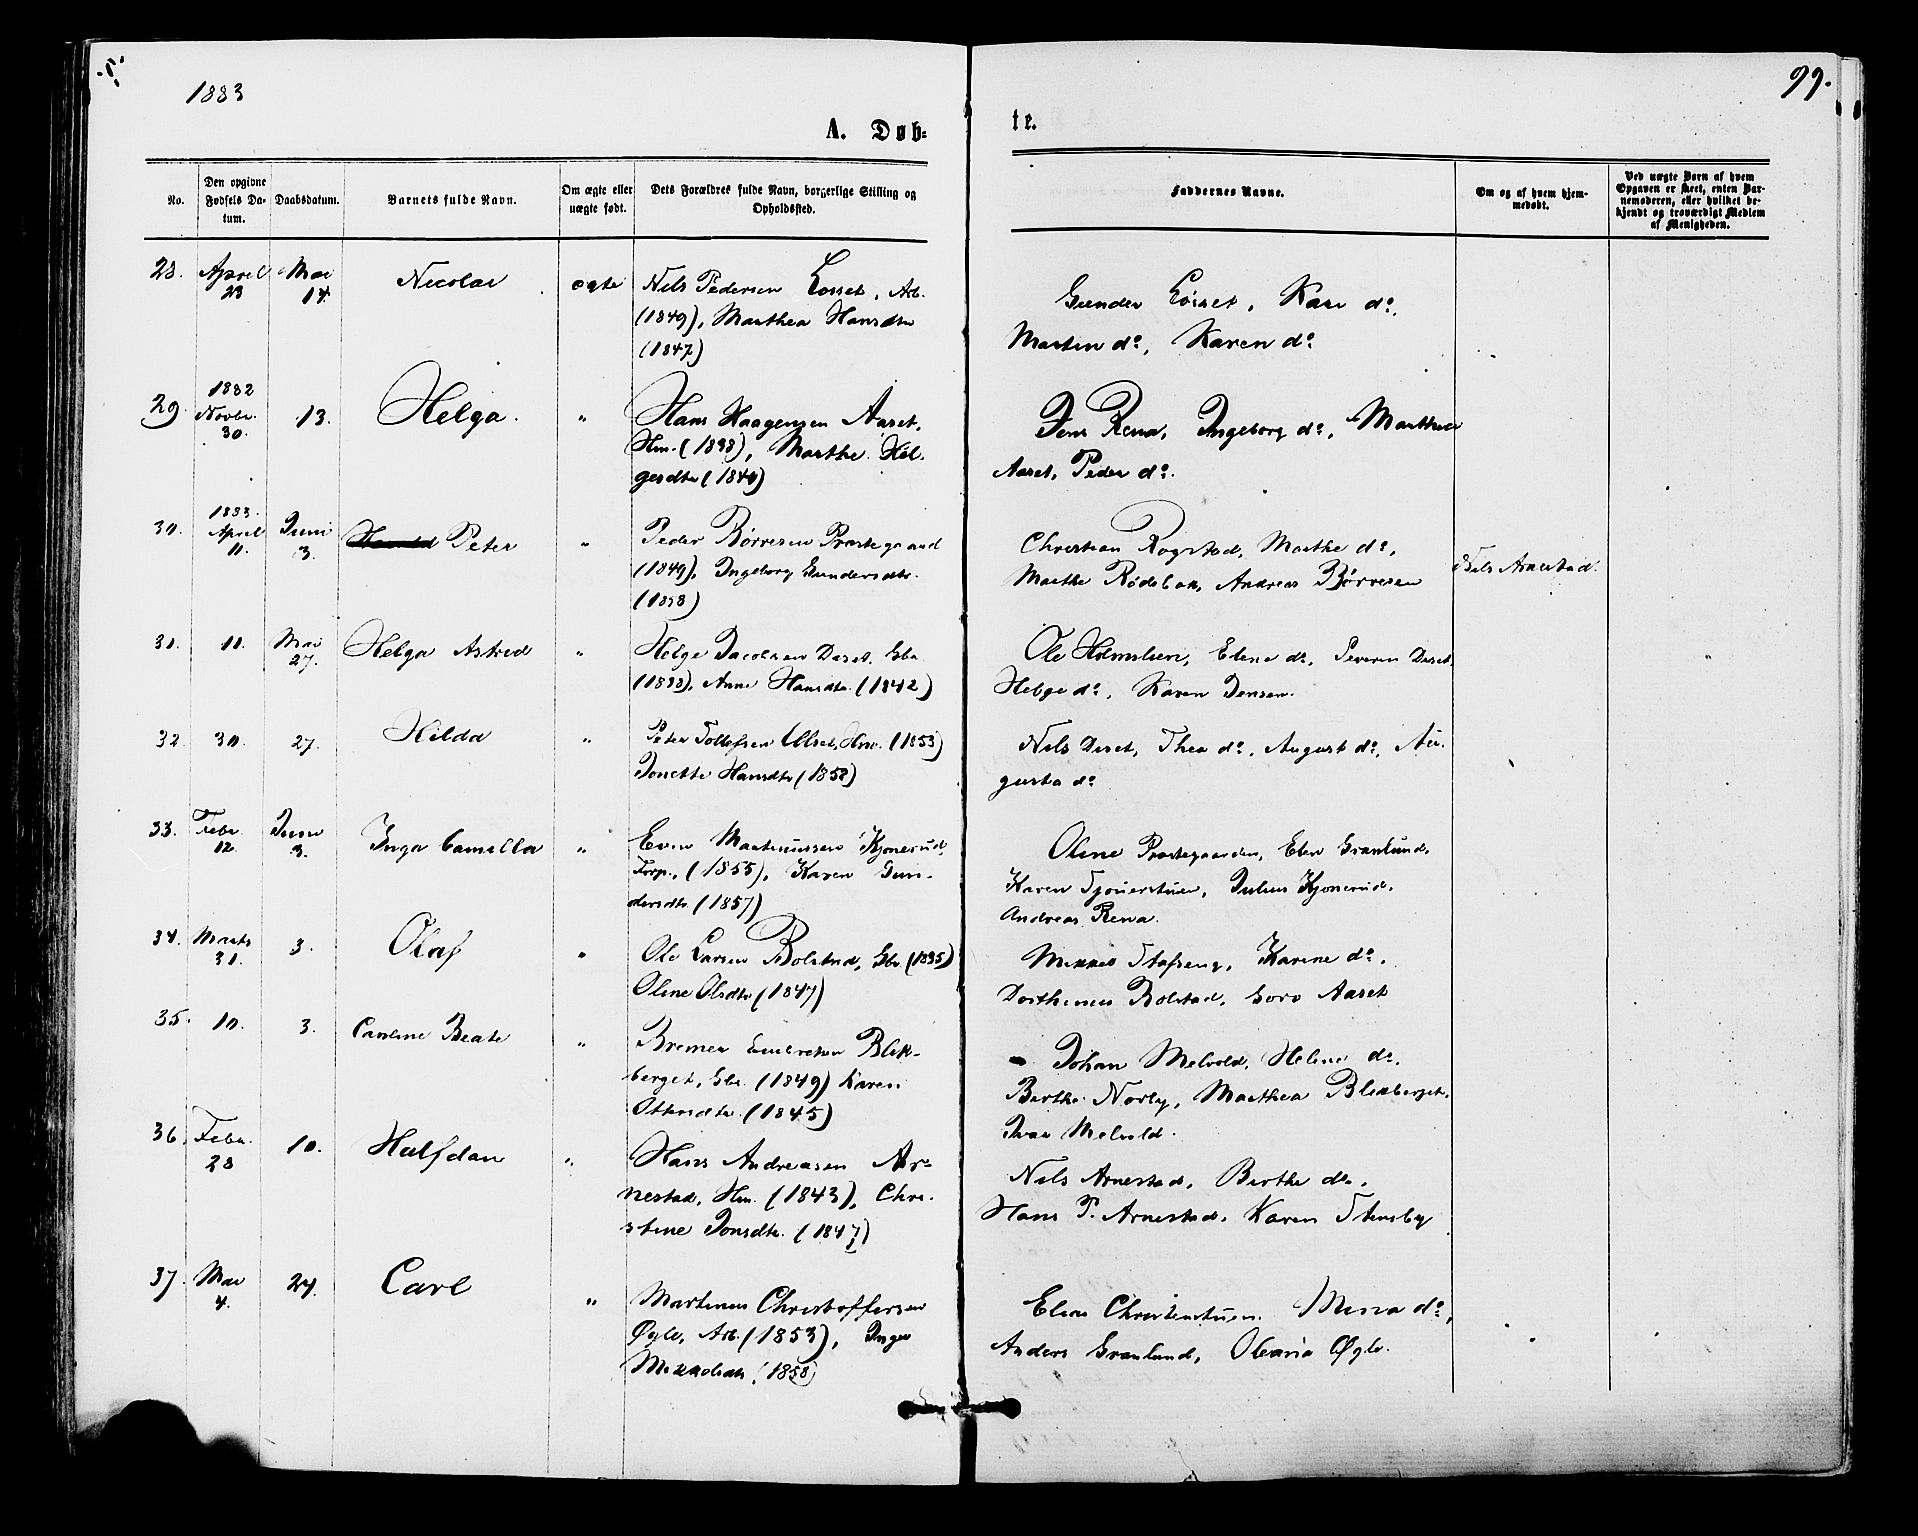 1883
99.
A. Døb-
te.
No.
Den opgivne Fødsels Datum.
Daabsdatum.
Barnets fulde Navn.
Om ægte eller uægte født.
Dets Forældres fulde Navn, borgerlige Stilling og Opholdssted.
Faddernes Navne.
Om og af hvem hjemmedøbt.
Ved uægte Børn af hvem Opgaven er skeet, enten Barnemoderen, eller hvilket bekjendt og troværdigt Medlem af Menigheden.
28. April 23 Mai 14. Nicolai ægte Nils Pedersen Løsset, Arb.
(1849), Marthea Hansdtr
(1847)
Gunder Løsset, Kari do,
Martin do, Karen do
29. 1882 Novbr. 30. 13. Helga. " Hans Haagensen Aaset,
Hm. (1838), Marthe Hel-
gesdtr (1840)
Jens Rena, Ingeborg do, Marthea
Aaset, Peder do.
30. 1883. April 11. Juni 3. Peter " Peder Børresen Prestegaard
(1849), Ingeborg Gundersdtr.
(1858)
Christian Rogstad, Marthe do,
Marthe Rødsbak, Andreas Børresen
Nils Arnestad.
31. 11. Mai 27. Helga Astrid " Helge Jacobsen Deset, Gbr.
(1838), Anne Hansdtr. (1842)
Ole Holmslien, Eline do, Peveren Deset,
Helge do, Karen Jensen.
32. 30. 27. Hilda " Peter Tollefsen Ulset, Hm. (1853)
Jonette Hansdtr (1858)
Nils Deset, Thea do, August do, Au-
gusta do
33. Febr. 12. Juni 3. Inga Camilla " Even Martinussen Kjønerud,
Forp., (1855), Karen Gun-
dersdtr. (1857)
Oline Prestegaarden, Elen Granlund,
Karen Tjønerstuen, Julius Kjønerud,
Andreas Rena.
34. Marts 31. 3. Olaf " Ole Larsen Bolstad, Gbr (1835)
Oline Olsdtr (1847)
Mikkel Stafseng, Karine do,
Dorthinus Bolstad, Goro Aaset
35. 10. 3. Caroline Beate " Bremer Embretsen Blik-
berget, Gbr. (1849) Karen
Ottersdtr. (1845)
Johan Melvold, Helene do,
Berthe Norby, Marthea Blikberget,
Ivar Melvold.
36. Febr. 28 10. Halfdan " Hans Andreasen Ar-
nestad, Hm. (1843), Chri-
stine Jonsdtr. (1847)
Nils Arnestad, Berthe do,
Hans P. Arnestad, Karen Stensby
37. Mai 4. 24. Carl " Martinus Christoffersen
Øgle, Arb. (1853), Inger
Mikkelsdtr. (1858)
Elias Christenstuen. Mina do,
Anders Granlund, Oleana Øgle.